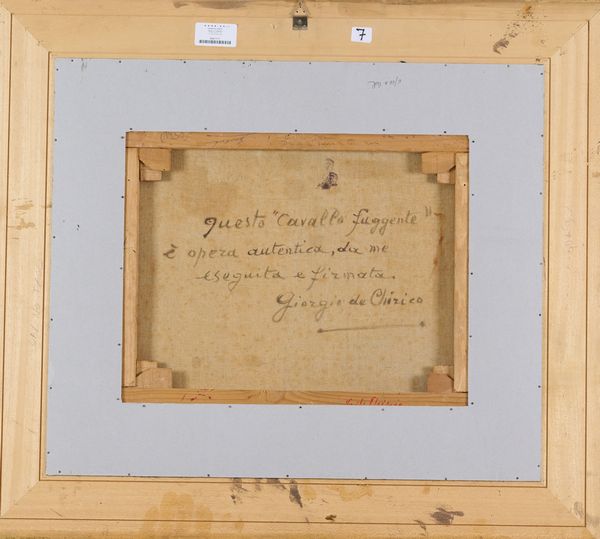 7
questo "Cavallo fuggente"
è opera autentica, da me
eseguita e firmata.
Giorgio de Chirico